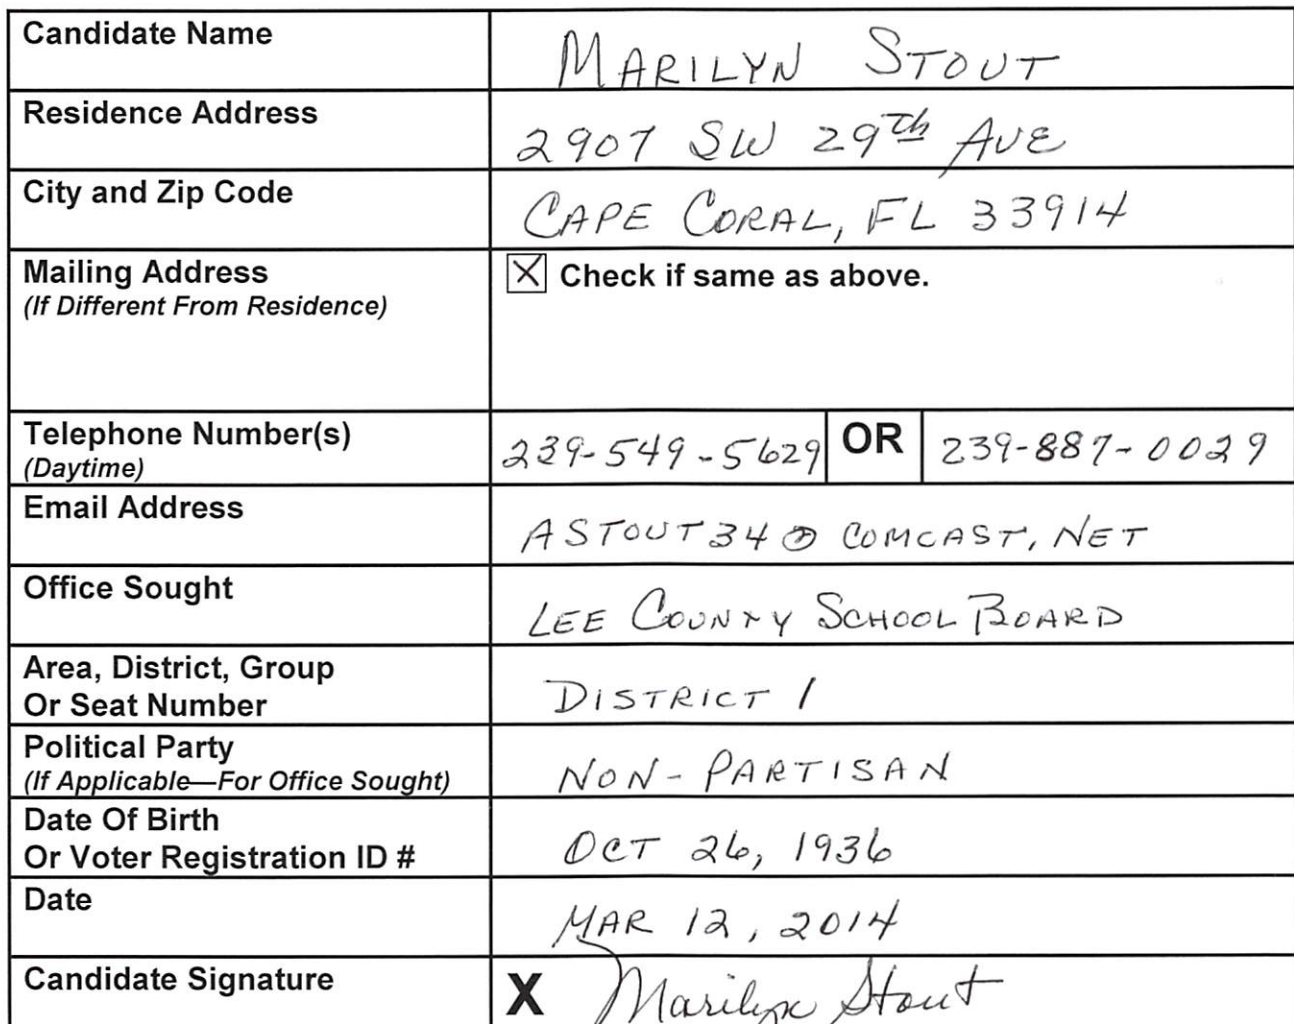 Candidate Name MARILYN STOUT
Residence Address 2907 SW 29th AVE
City and Zip Code CAPE CORAL, FL 33914
Mailing Address ☒ Check if same as above.
(If Different From Residence)
Telephone Number(s) 239-549-5629 OR 239-887-0029
(Daytime)
Email Address ASTOUT34@COMCAST.NET
Office Sought LEE COUNTY SCHOOL BOARD
Area, District, Group
Or Seat Number DISTRICT 1
Political Party
(If Applicable—For Office Sought) NON-PARTISAN
Date Of Birth
Or Voter Registration ID # OCT 26, 1936
Date MAR 12, 2014
Candidate Signature X Marilyn Stout